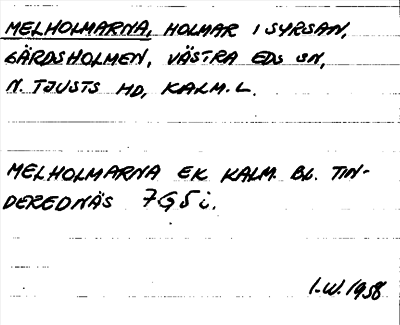 MELHOLMARNA, HOLMAR I SYRSAN,
GÄRDSHOLMEN, VÄSTRA EDS SN,
N. TJUSTS HD, KALM. L.
MELHOLMARNA EK KALM. BL. TIN-
DEREDNÄS 7G5i.
I.W. 1958